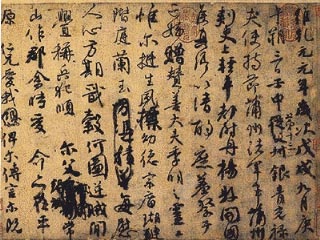 維乾元元年歲次戊戌九月庚
午朔三日壬申第十三叔銀青光祿
夫使持節蒲州諸軍事蒲州
刺史上輕車都尉丹楊縣開國
侯真卿以清酌庶羞祭于
亡姪贈贊善大夫季明之靈曰
惟爾挺生夙標幼德宗廟瑚璉
階庭蘭玉每慰
人心方期戩穀何圖逆賊閒
釁稱兵犯順爾父竭誠常
山作郡余時受命亦在平
原仁兄愛我俾爾傳言爾既